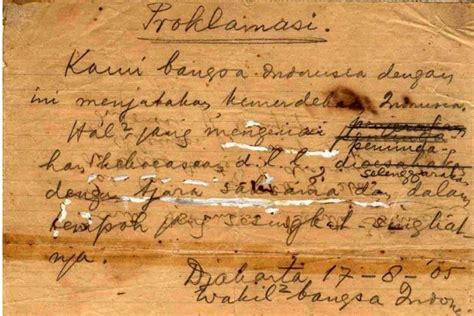 Proklamasi.
Kami bangsa Indonesia dengan
ini menjatakan kemerdekaan Indonesia.
Hal² jang mengenai
peminda-
han kekoeasaan d.l.l., dioesahakan
selenggarakan
dengan tjara saksama dan dalam
tempoh jang sesingkat-singkat-
nja.
Djakarta 17-8-'05
Wakil² bangsa Indone